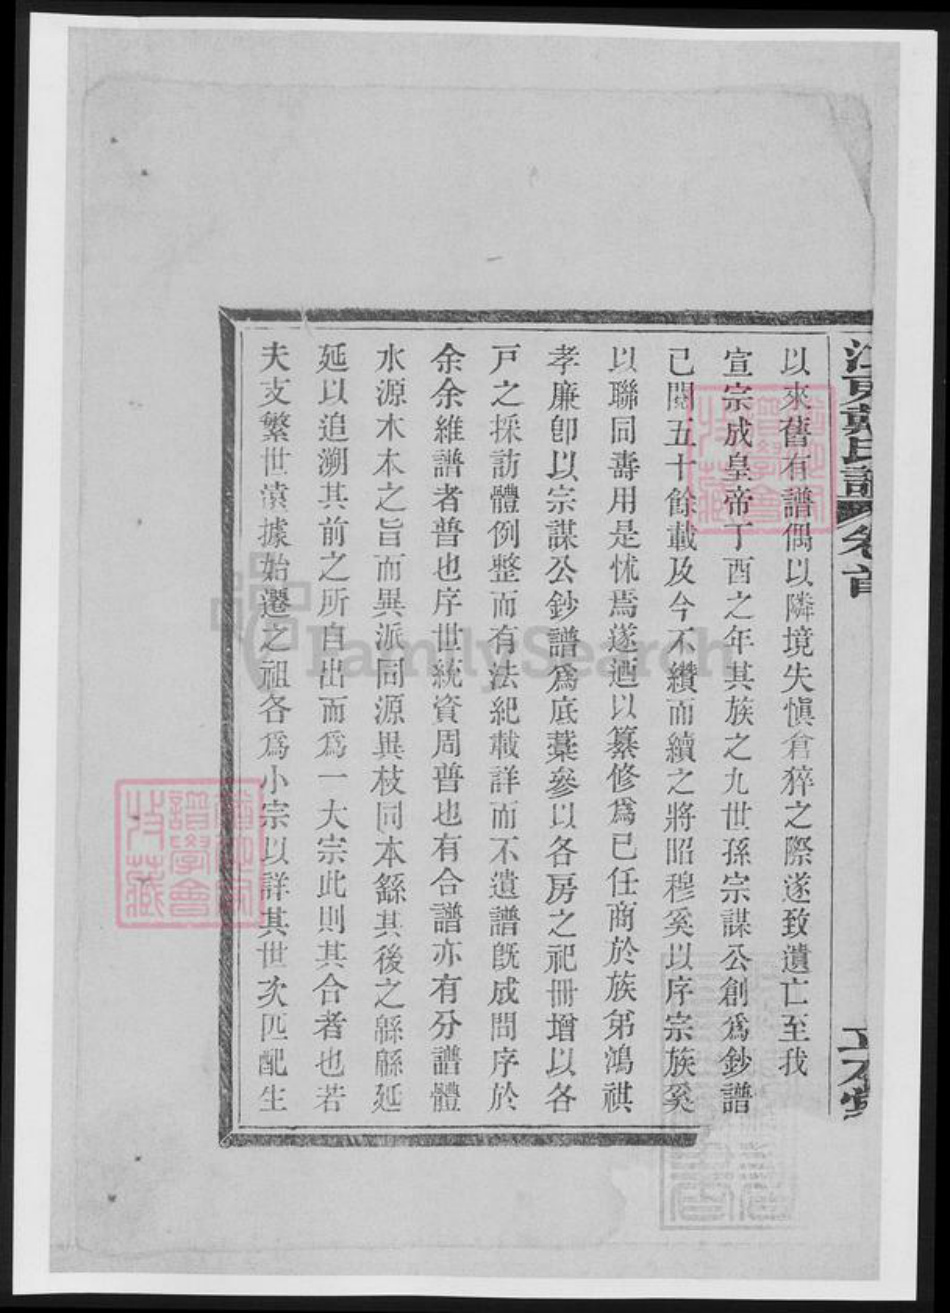 江東戴氏譜 卷首
以來舊有譜偶以隣境失愼倉猝之際遂致遺亡至我
宣宗成皇帝丁酉之年其族之九世孫宗謀公創爲鈔譜
已閱五十餘載及今不纘而續之將昭穆奚以序宗族奚
以聯同壽用是怵焉遂迺以纂修爲已任商於族弟鴻祺
孝廉卽以宗謀公鈔譜爲底藁參以各房之祀冊增以各
戸之採訪體例整而有法紀載詳而不遺譜旣成問序於
余余維譜者普也序世統資周普也有合譜亦有分譜體
水源木本之旨而異派同源異枝同本繇其後之緜緜延
延以追溯其前之所自出而爲一大宗此則其合者也若
夫支繁世遠據始遷之祖各爲小宗以詳其世次匹配生
譜學會
收藏
FamilySearch